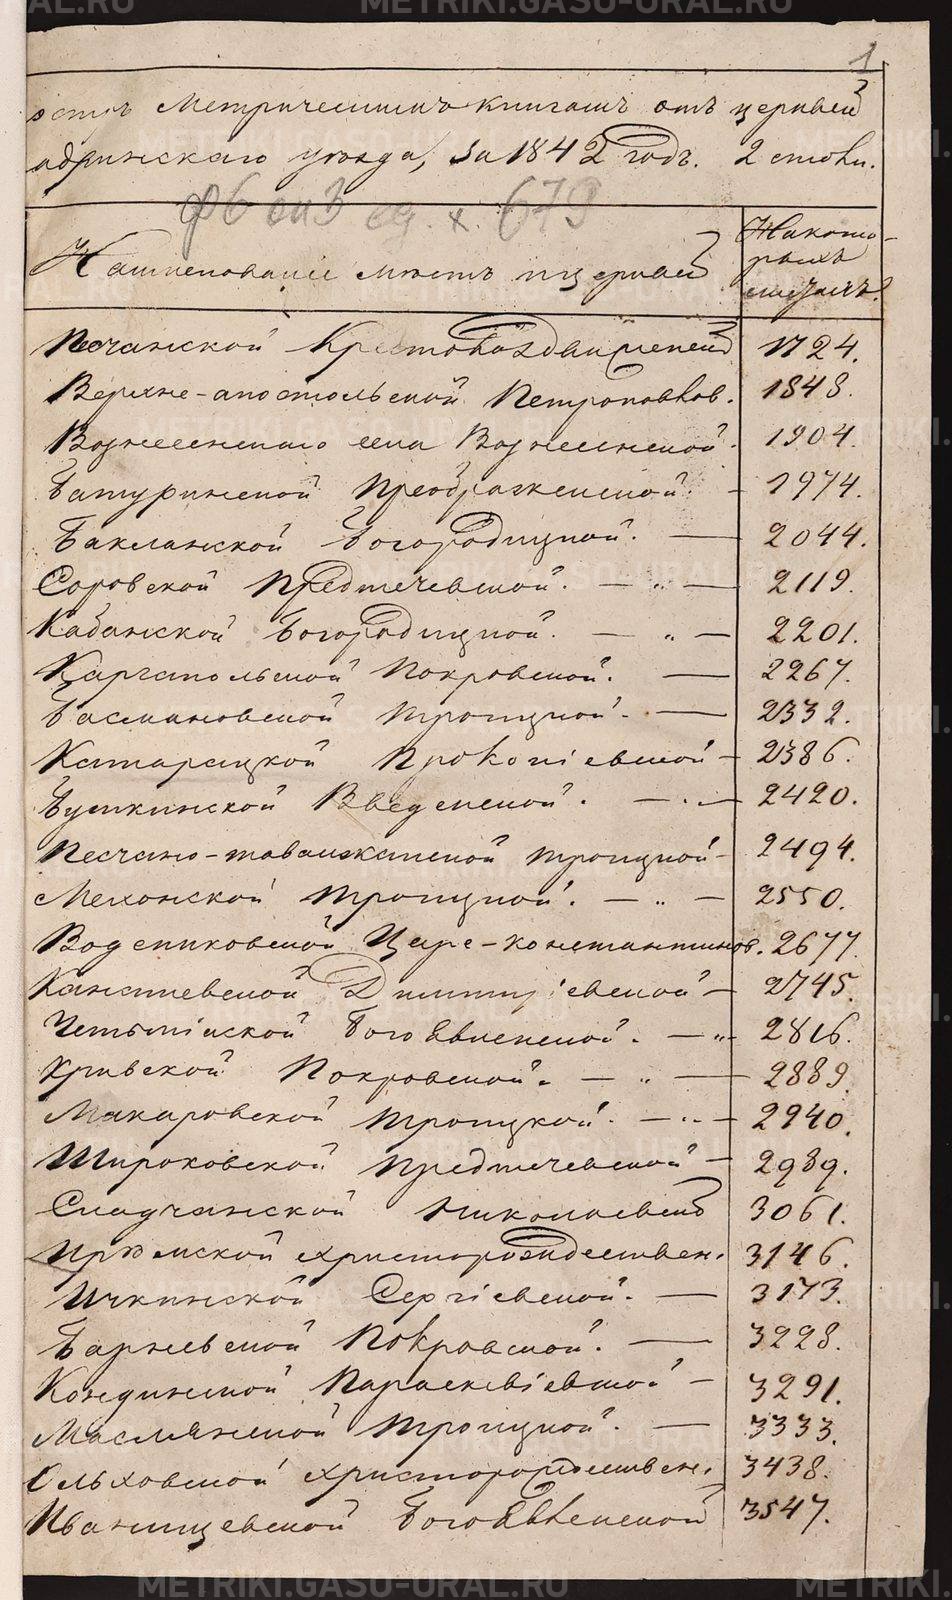 1
естръ метрическимъ книгамъ отъ церквей
адринскаго уѣзда, за 1842 годъ. 2 столи.
ф 6 оп 3 ед. х. 679
Наименованіе мѣстъ и церквей
На кото-
рыхъ
листахъ.
Песчанской Крестовоздвиженской 1724.
Верхне-апостольской Петропавлов. 1848.
Вознесенскаго села Вознесенской. 1904.
Батуринской Преображенской. - 1974.
Бакланской Богородицкой. — 2044.
Соровской Предтечевской. — „ — 2119.
Кабанской Богородицкой. — „ — 2201.
Каргапольской Покровской. — 2267.
Басмановской Троицкой. — 2332.
Катарацкой Прокопіевской - 2386.
Буткинской Введенской. — „ — 2420.
Песчано-таволжанской Троицкой - 2494.
Мехонской Троицкой. — „ — 2550.
Воденниковской Царе-константинов. 2677.
Канашевской Димитріевской - 2745.
Четкинской Богоявленской. — „ - 2816.
Кривской Покровской. — „ — 2889.
Макаровской Троицкой. — „ — 2940.
Широковской Предтечевской - 2989.
Сладчанской Николаевской 3061.
Ирюмской христорождествен. 3146.
Ичкинской Сергіевской. — 3173.
Барневской Покровской. — 3228.
Кондинской Параскевіевской - 3291.
Маслянской Троицкой. — 3333.
Ольховской христорождествен. 3438.
Иванищевской Богоявленской 3547.
METRIKI.GASU-URAL.RU